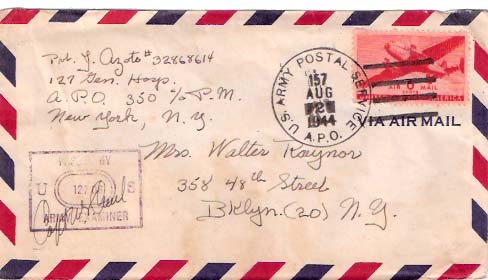 Pvt. J. Azoto #32868614
127 Gen. Hosp.
A.P.O. 350 c/o P.M.
New York, N.Y.
U.S. ARMY POSTAL SERVICE
157
AUG
2
1944
A.P.O.
AIR 6 MAIL
AMERICA
VIA AIR MAIL
Mrs. Walter Raynor
358 48th Street
Bklyn. (20) N.Y.
BY
U S
ARMY EXAMINER